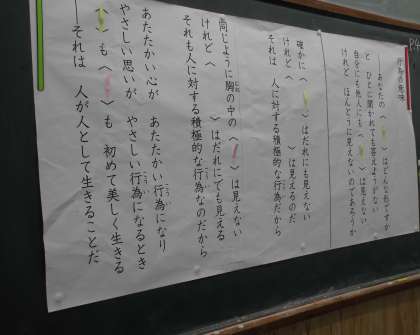 P4
行為の意味
――あなたの(　)はどんな形ですか
と　ひとに聞かれても答えようがない
自分にも他人にも(　)は見えない
けれど　ほんとうに見えないのであろうか
確かに(　)はだれにも見えない
けれど(　)は見えるのだ
それは　人に対する積極的な行為だから
同じように胸の中の(　)は見えない
けれど(　)はだれにでも見える
それも人に対する積極的な行為なのだから
あたたかい心が　あたたかい行為になり
やさしい思いが　やさしい行為になるとき
(　)も(　)も　初めて美しく生きる
――それは　人が人として生きることだ